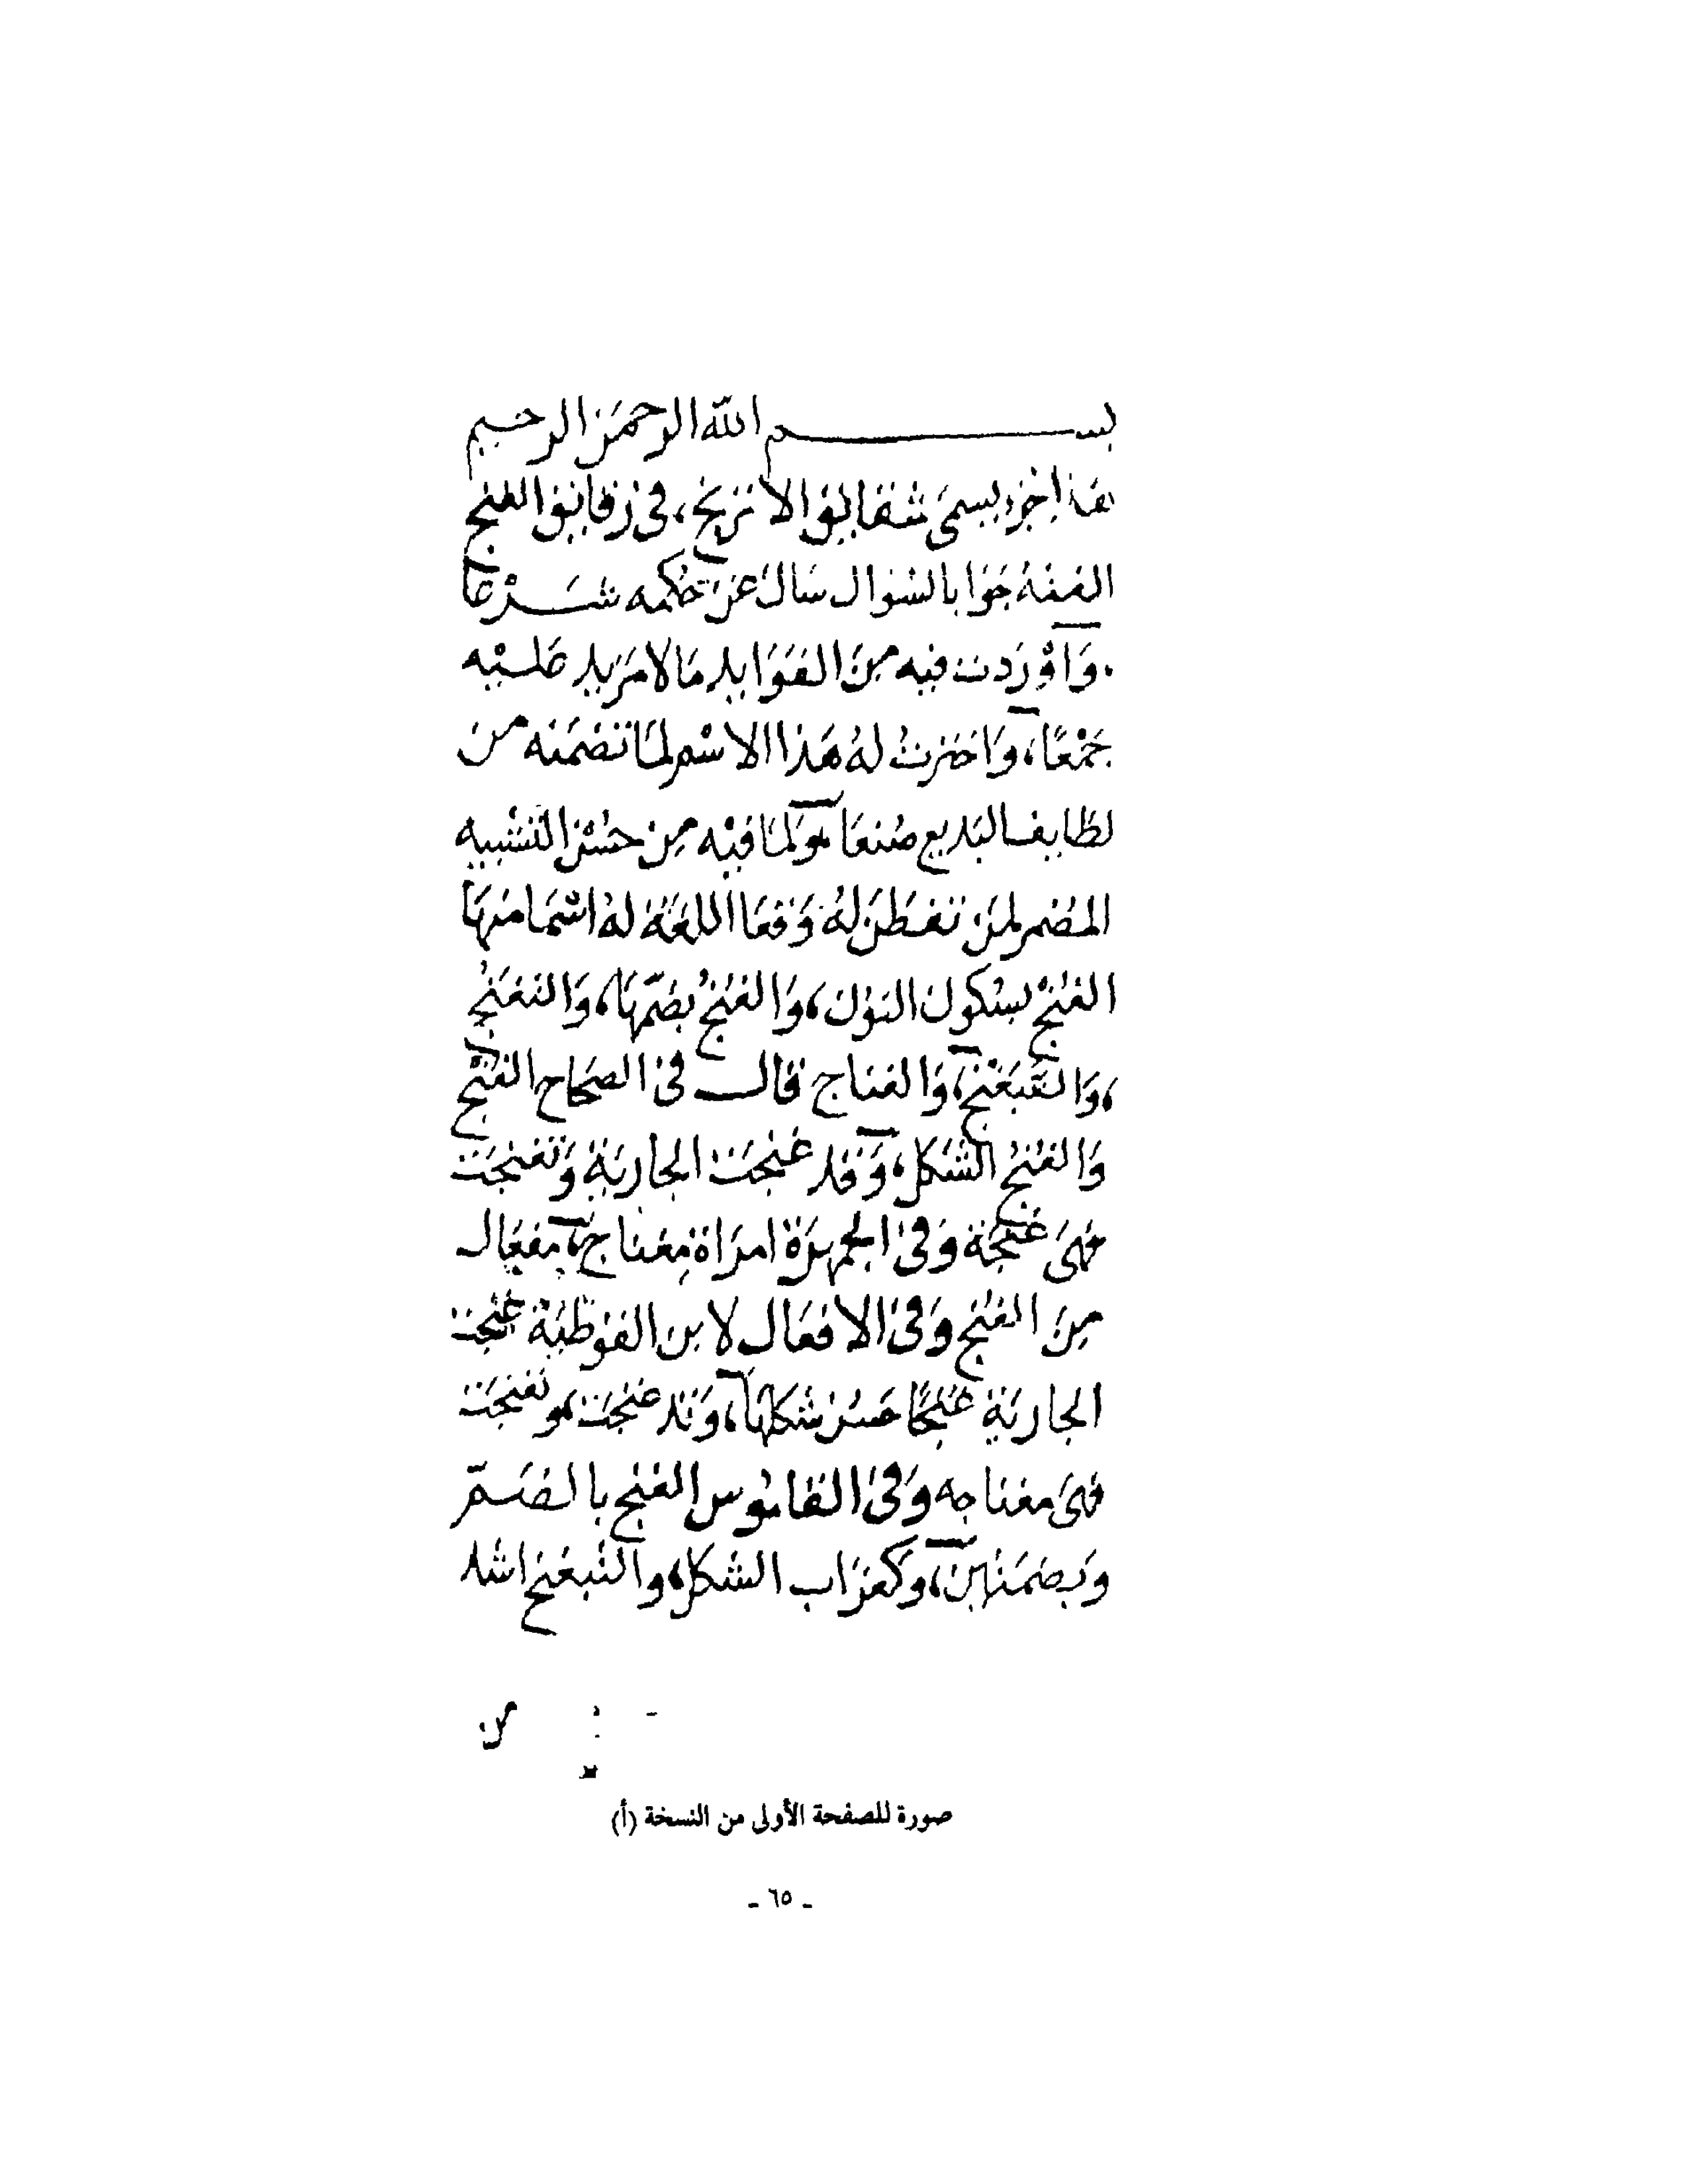 بسم الله الرحمن الرحيم
هذا جزء يسمى شقايق الاترنج، في رقايق الغنج
الفته جوابا لسوال سال عن حكمه شرعا
، وَاوْرَدت فيه مِنَ الفَوَايد مَا لا مَزيد عَليْه
جَمْعًا، وَاخترتُ لهُ هَذا الاسْم لمَا تضمَنه من
لطايف البَديع صُنعَا، وَلمَا فيْه مِن حُسْن التشبيه
المضمر لمَن تفطَن لهُ وَقعَا اللغَة لهُ اسْمَا منهَا
الغنْج بسْكون النوْن، وَالغنُج بضَمّهَا، وَالتغَنج
، وَالتَبَغْنج، وَالغناج قال في الصحَاح الغنْج
وَالغنُج الشكل، وَقد غنجَت الجاريَة وَتغنجَت
فهىَ غنجَة وَفى الجمهرَة امرَاة مِغناج، مفعَال
مِنَ الغنج وَفى الافعَال لابن القوطيَة غنجت
الجاريَة غنجًا حَسُن شكلهَا، وَقد غنجَت، وتغنجَت
فهىَ مغناجه وَفى القامُوس الغنج بالضَم
وَبضمَتين، وَكغرَاب الشكل، والتبغنج اشد
من
صورة للصفحة الأولى من النسخة (أ)
- ٦٥ -